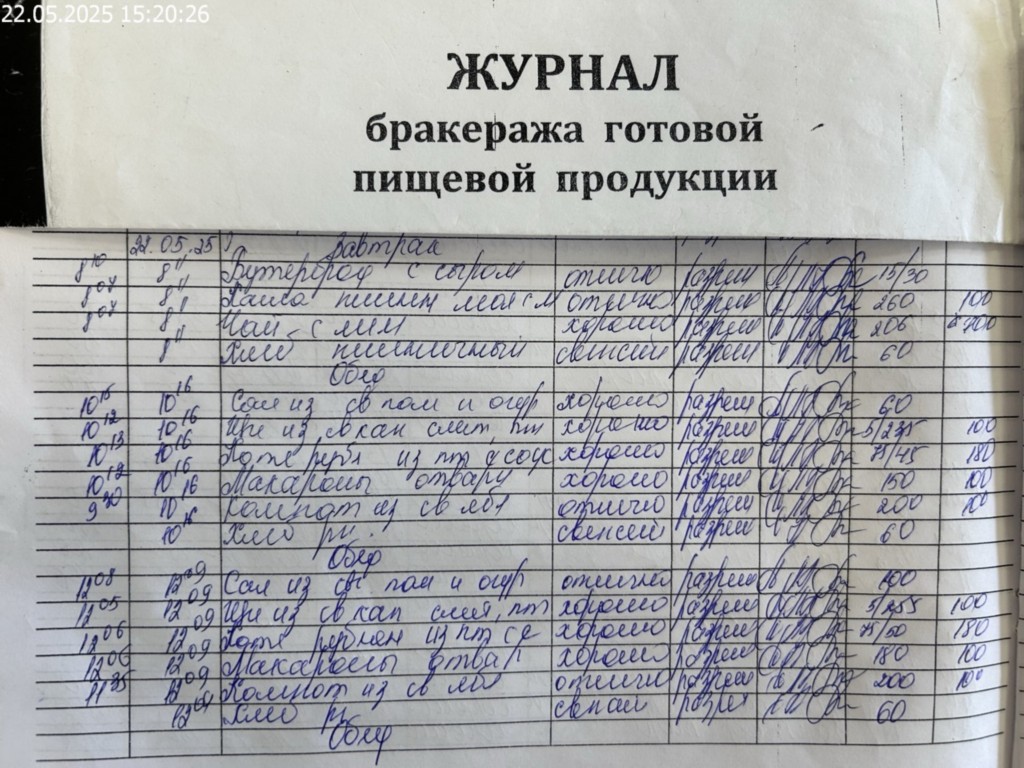 22.05.2025 15:20:26
ЖУРНАЛ
бракеража готовой
пищевой продукции
22.05.25 Завтрак
8 10 8 11 Бутерброд с сыром отлично разреш 15/30
8 07 8 11 Каша пшен мол с м отлично разреш 260 100
8 07 8 11 Чай с лим хорошо разреш 206
8 11 Хлеб пшеничный разреш 60
Обед
10 15 10 16 Сал из св пом и огур хорошо разреш 60
10 12 10 16 Щи из св кап смет пт хорошо разреш 5/235 100
10 13 10 16 Котле рубл из пт с соус хорошо разреш 75/45 180
10 12 10 16 Макароны отвар хорошо разреш 150 100
9 20 10 16 Компот из св ябл отлично разреш 200 100
10 16 Хлеб рж. разреш 60
Обед
12 08 12 09 Сал из св пом и огур отлично разреш 100
12 05 12 09 Щи из св кап смет, пт хорошо разреш 5/255 100
12 06 12 09 Котле рублен из пт хорошо разреш 75/50 180
12 06 12 09 Макароны отвар хорошо разреш 180 100
11 35 12 09 Компот из св ябл отлично разреш 200 100
12 09 Хлеб рж разреш 60
Обед